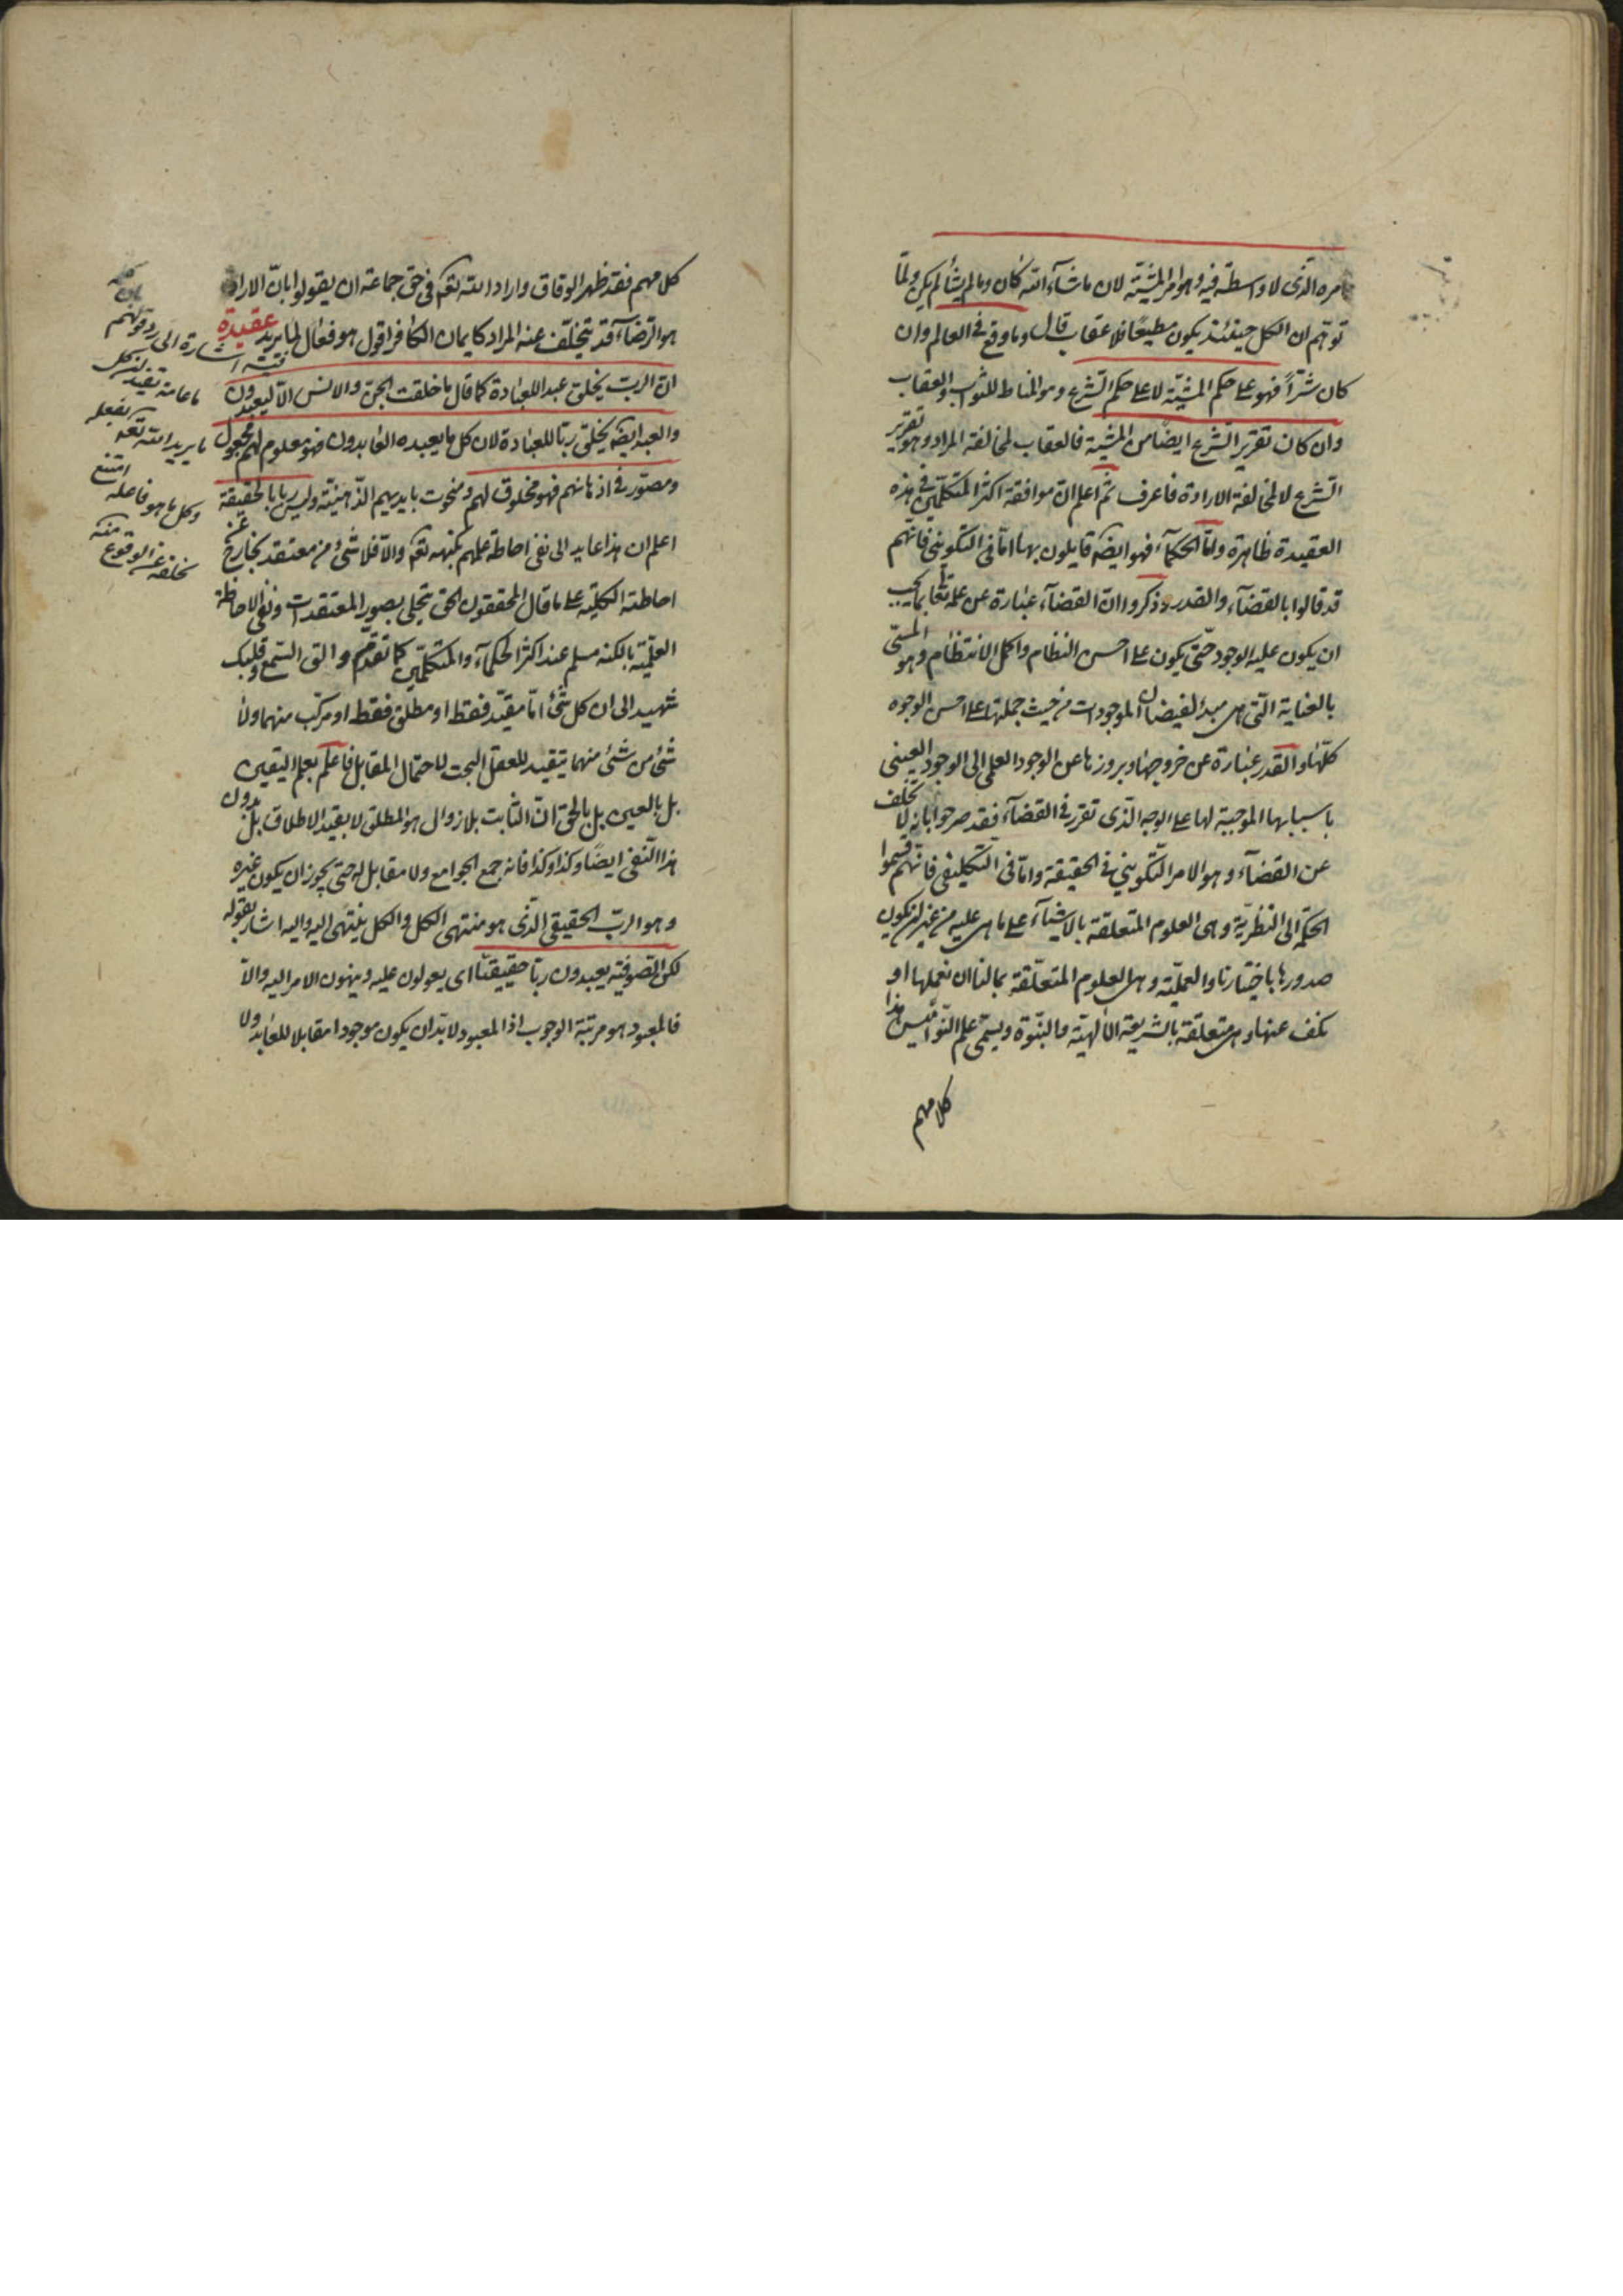 امره الذى لا واسطة فيه وهو امر المشيّة لان ما شآء الله كان وما لم يشأ لم يكن ولمّا
توهّم ان الكل حينئذ يكون مطيعًا فلا عقاب قال وما وقع فى العالم وان
كان شرّاً فهو على حكم المشيّة لا على حكم الشرع وهو المناط للثواب والعقاب
وان كان تقرير الشرع ايضًا من المشية فالعقاب لمخالفة المراد وهو تقرير
الشرع لا لمخالفة الارادة فاعرف ثم اعلم ان موافقة اكثر المتكلّمين فى هذه
العقيدة ظاهرة وامّا الحكمآء فهو ايضه قايلون بها امّا فى التكوينى فانّهم
قد قالوا بالقضآء والقدر وذكروا انّ القضآء عبارة عن علمه تعا بما يجب
ان يكون عليه الوجود حتّى يكون على احسن النظام واكمل الانتظام وهو المسمّى
بالعناية الّتى هى مبدأ لفيضان الموجودات من حيث جملتها على احسن الوجوه
كلّها والقدر عبارة عن خروجها وبروزها عن الوجود العلمى الى الوجود العينى
باسبابها الموجبة لها على الوجه الّذى تقرر فى القضآء فقد صرحوا بانه لا تخلف
عن القضآء وهو الامر التّكوينى فى الحقيقة وامّا فى التّكليفى فانّهم قسموا
الحكمة الى النظريّة وهى العلوم المتعلقة بالاشيآء على ما هى عليه من غير ان يكون
صدورها باختيارنا والعمليّة وهى العلوم المتعلّقة بما لنا ان نعملها او
نكف عنها وهى متعلّقة بالشريعة الالهيّة والنبّوة ويسمّى علم النّواميس هذا
كلامهم
كلامهم فقد ظهر الوفاق واراد الله تعه فى حق جماعة ان يقولوا بانّ الاراد
هو الرّضآء قد يتخلّف عنه المراد كايمان الكافر اقول هو فعّال لما يريد عقيدة
انّ الربّ يخلق عبدا للعبادة كما قال ما خلقت الجنّ والانس الّا ليعبدون
والعبد ايضه يخلق ربّا للعبادة لان كل ما يعبده العابدون فهو معلوم لهم مجعول
ومصوّر فى اذهانهم فهو مخلوق لهم ومنحوت بايديهم الذّهنيّة وليس ربا بالحقيقة
اعلم ان هذا عايد الى نفى احاطة علمهم بكنهه تعه والّا فلا شئ من معتقد بخارج عن
احاطته الكليّة على ما قال المحققون الحق تجلى بصور المعتقدات ونفى الاحاطة
العلميّة بالكنه مسلم عند اكثر الحكمآء والمتكلّمين كما تقدّم والق السّمع وقلبك
شهيد الى ان كل شئ امّا مقيّد فقط او مطلق فقط او مركّب منهما ولا
شئ من شئ منهما يتقيد للعقل البحت لاحتمال المقابل فاعلم بعلم اليقين
بل بالعين بل بالحق انّ الثابت بلا زوال هو المطلق لا بقيد الاطلاق بل بدون
هذا النّفى ايضًا وكذا وكذا فانه جمع الجوامع ولا مقابل له حتى يجوز ان يكون غيره
وهو الربّ الحقيقى الّذى هو منتهى الكل والكل ينتهى اليه واليه اشار بقوله
لكن الصّوفيّة يعبدون ربّا حقيقيّا اى يعولون عليه وينهون الامر اليه والّا
فالمعبود هو مرتبة الوجوب اذ المعبود لا بدّ ان يكون موجودا مقابلا للعابد ولا
فيه اشارة الى رد قولهم
ما عامة تفيد ان كل
ما يريد الله تعه يفعله
وكل ما هو فاعله امتنع
تخلفه عن الوقوع منه